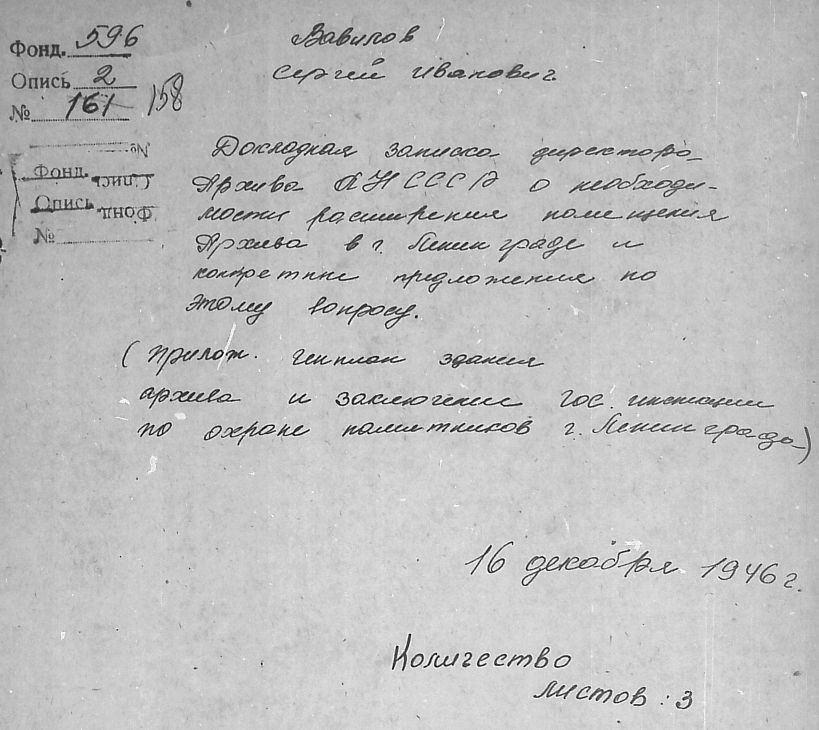 Фонд. 596
Опись 2
№ 161 158
Вавилов
Сергей Иванович.
№
Фонд.
Опись
Опись
Фонд
№
Докладная записка директора
Архива АН СССР о необходи-
мости расширения помещения
Архива в г. Ленинграде и
конкретные предложения по
этому вопросу.
(прилож. генплан здания
архива и заключение гос. инспекции
по охране памятников г. Ленинграда)
16 декабря 1946 г.
Количество
листов: 3